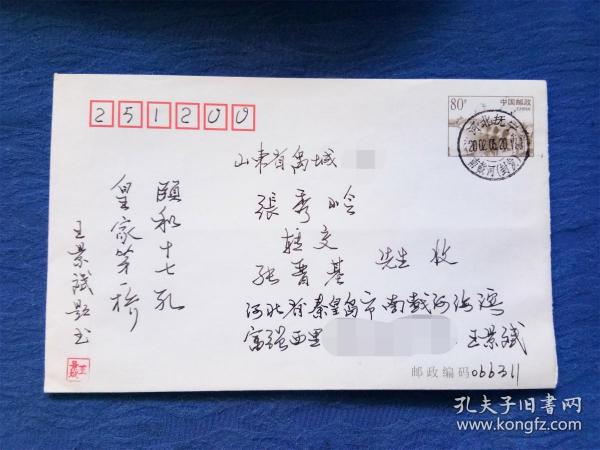 251200
80分
中国邮政
CHINA
河北抚宁
2002.05.20.1
南戴河(封发)
山东省禹城
張秀岭
转交
张晋基 先生 收
河北省秦皇岛市南戴河海滨
富强西里
王景斌
邮政编码066311
颐和十七孔
皇家第一桥
王景斌题书
孔夫子旧书网
www.kongfz.com